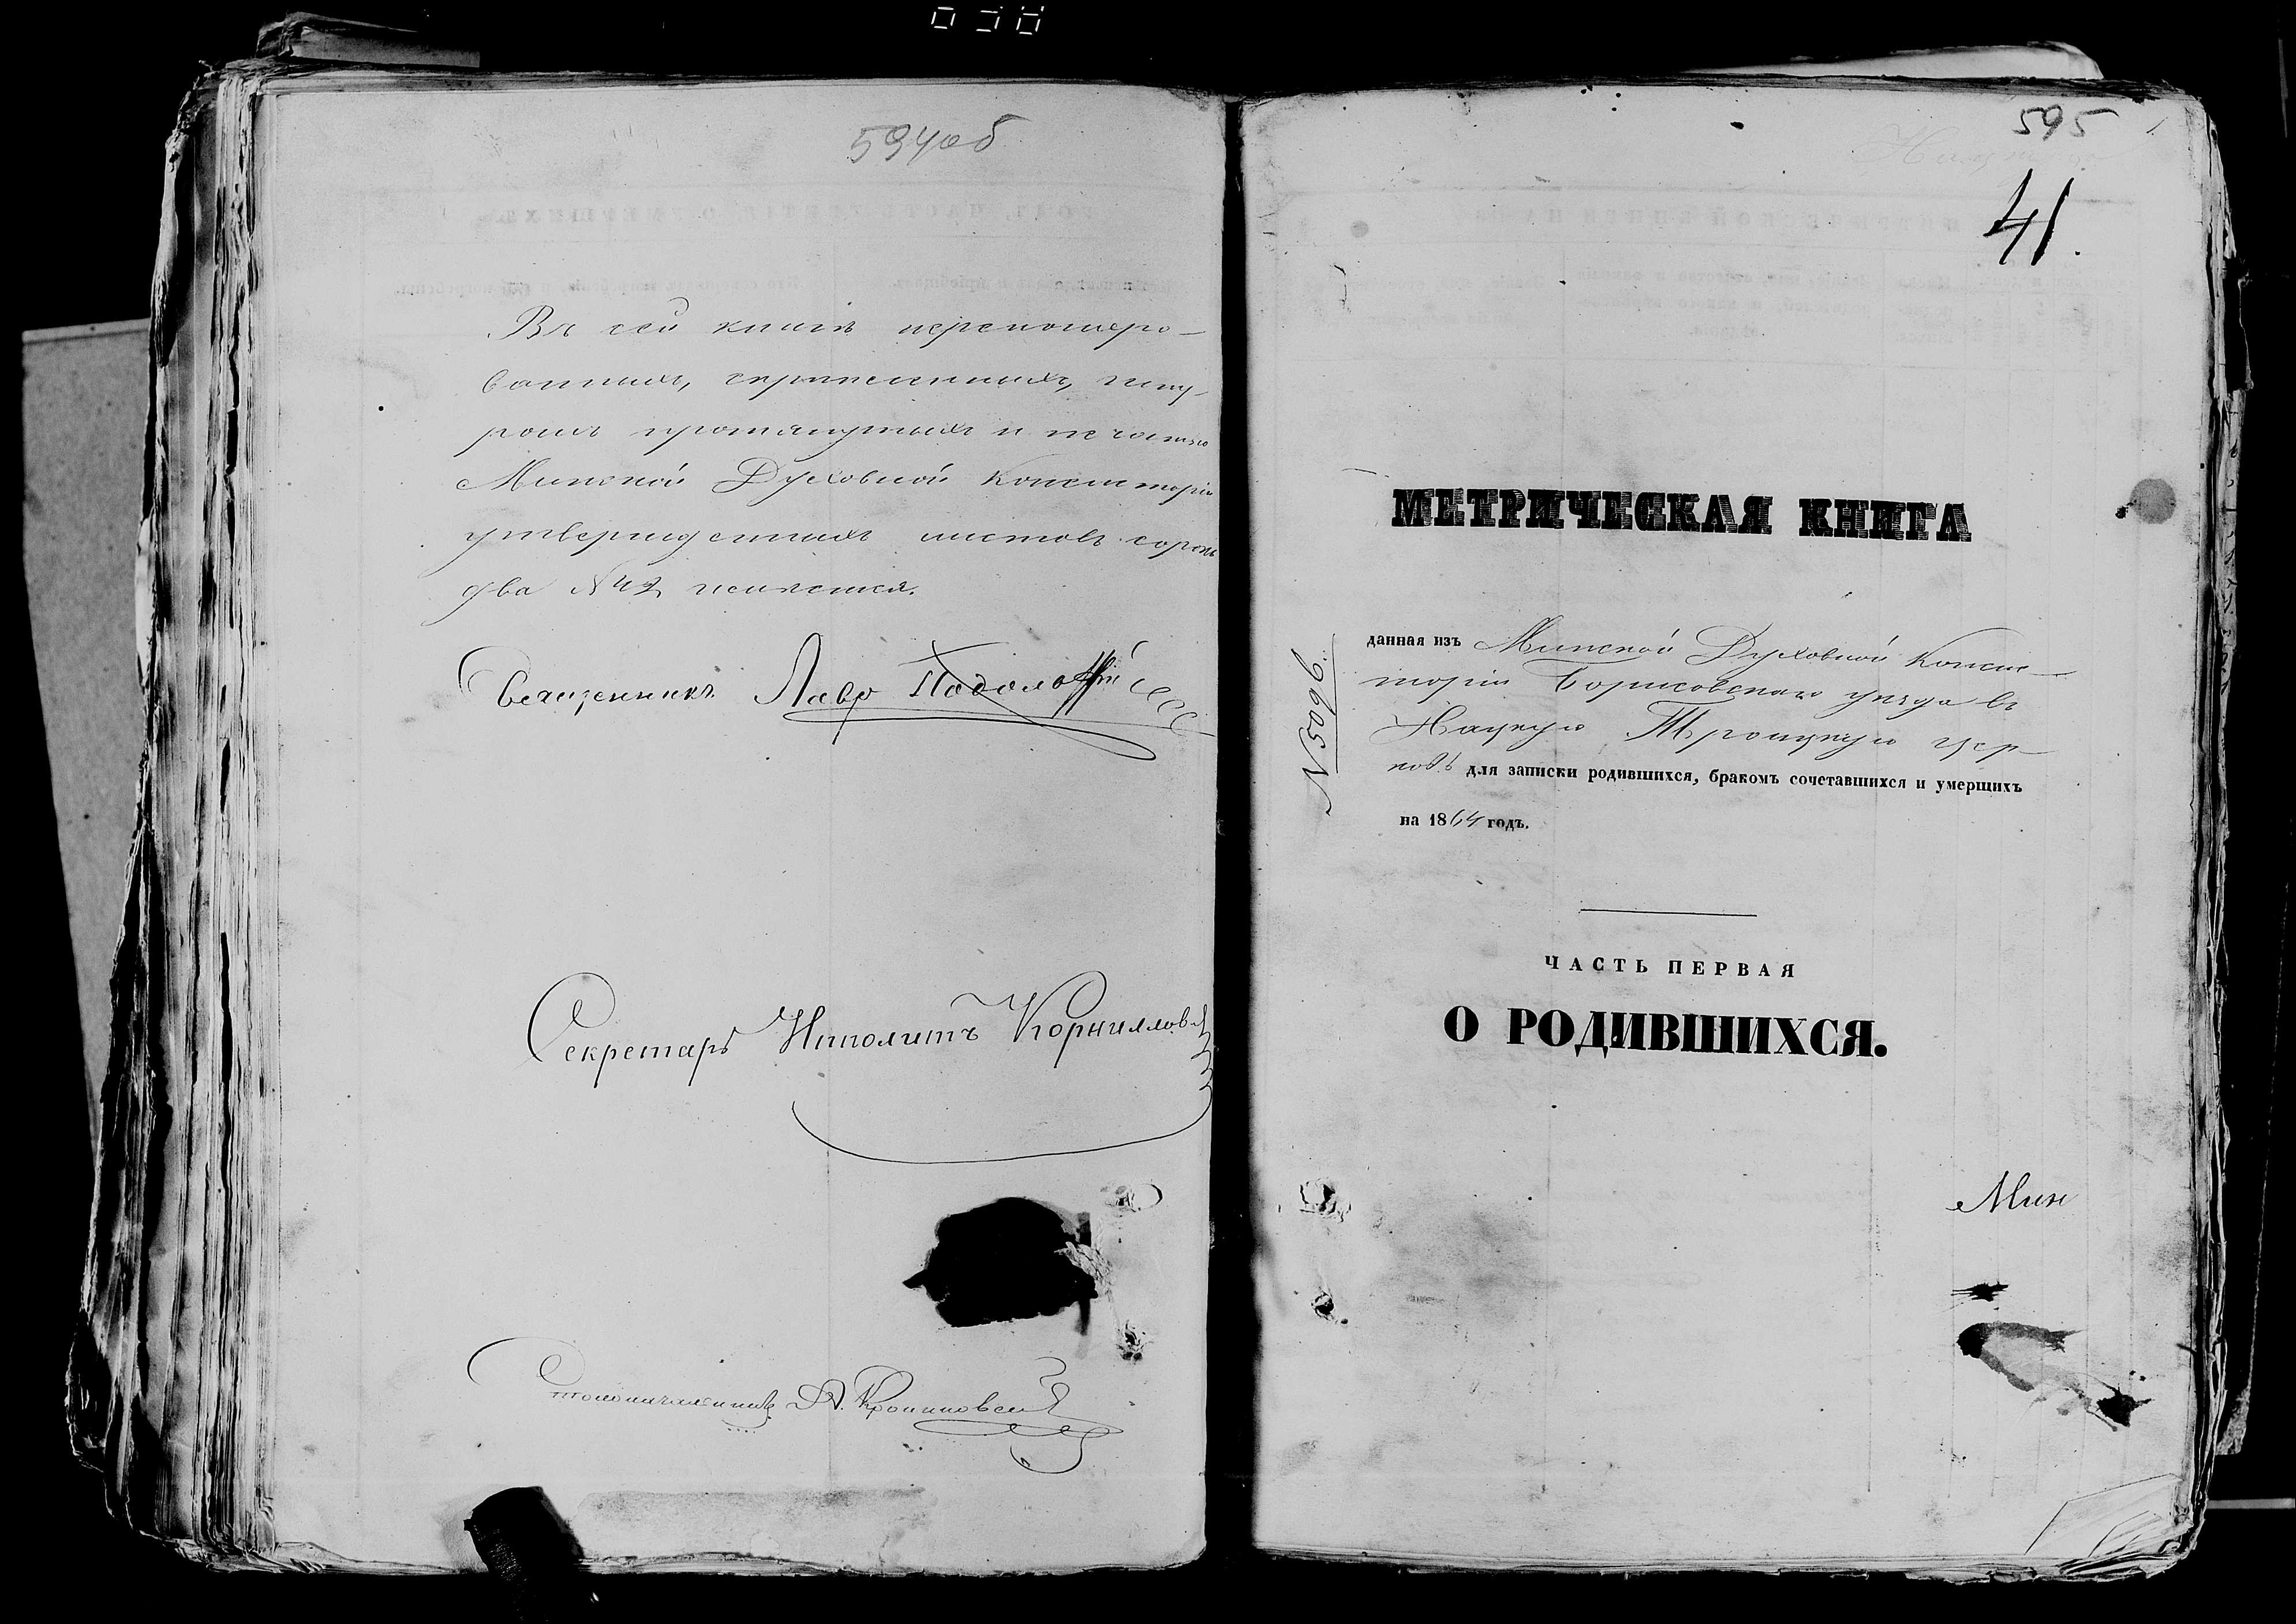 594об
Въ сей книгѣ перенумеро-
ванныхъ, скрѣпленныхъ, шну-
ромъ протянутыхъ и печатью
Минской Духовной Консисторіи
утвержденныхъ листовъ сорокъ
два № 42 числится.
Священникъ Лавр
Секретарь Ипполитъ Корнилловъ
Столоначальникъ А.
595
41.
МЕТРИЧЕСКАЯ КНИГА
№ 5096.
данная изъ Минской Духовной Консис-
торіи Борисовскаго уѣзда въ
Нацкую Троицкую цер-
ковь для записки родившихся, бракомъ сочетавшихся и умерщихъ
на 1864 годъ.
ЧАСТЬ ПЕРВАЯ
О РОДИВШИХСЯ.
Мин